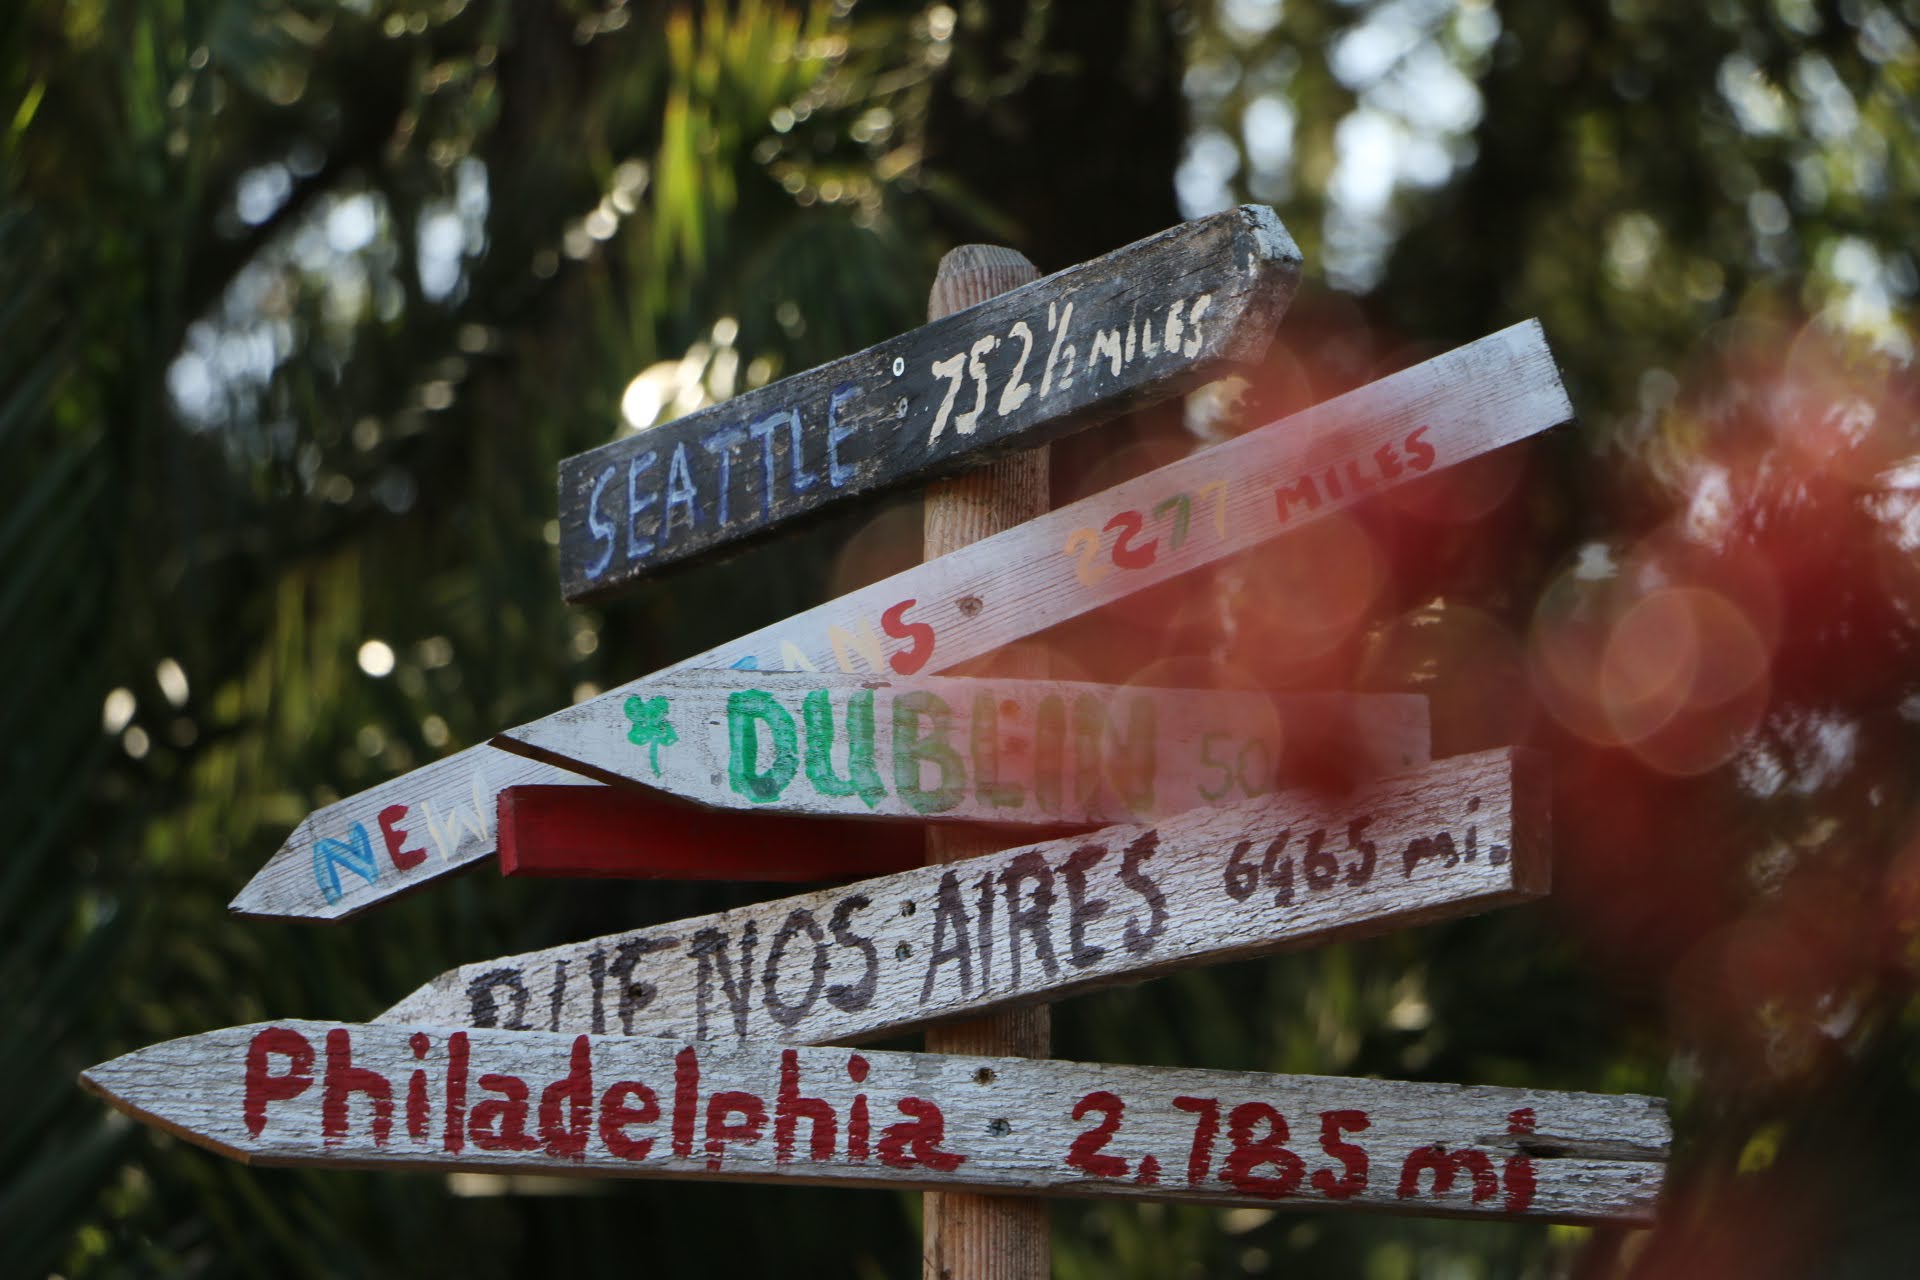 SEATTLE 752½ MILES
NEW ANS 2277 MILES
DUBLIN 50
BUENOS AIRES 6465 mi.
Philadelphia 2,785 mi